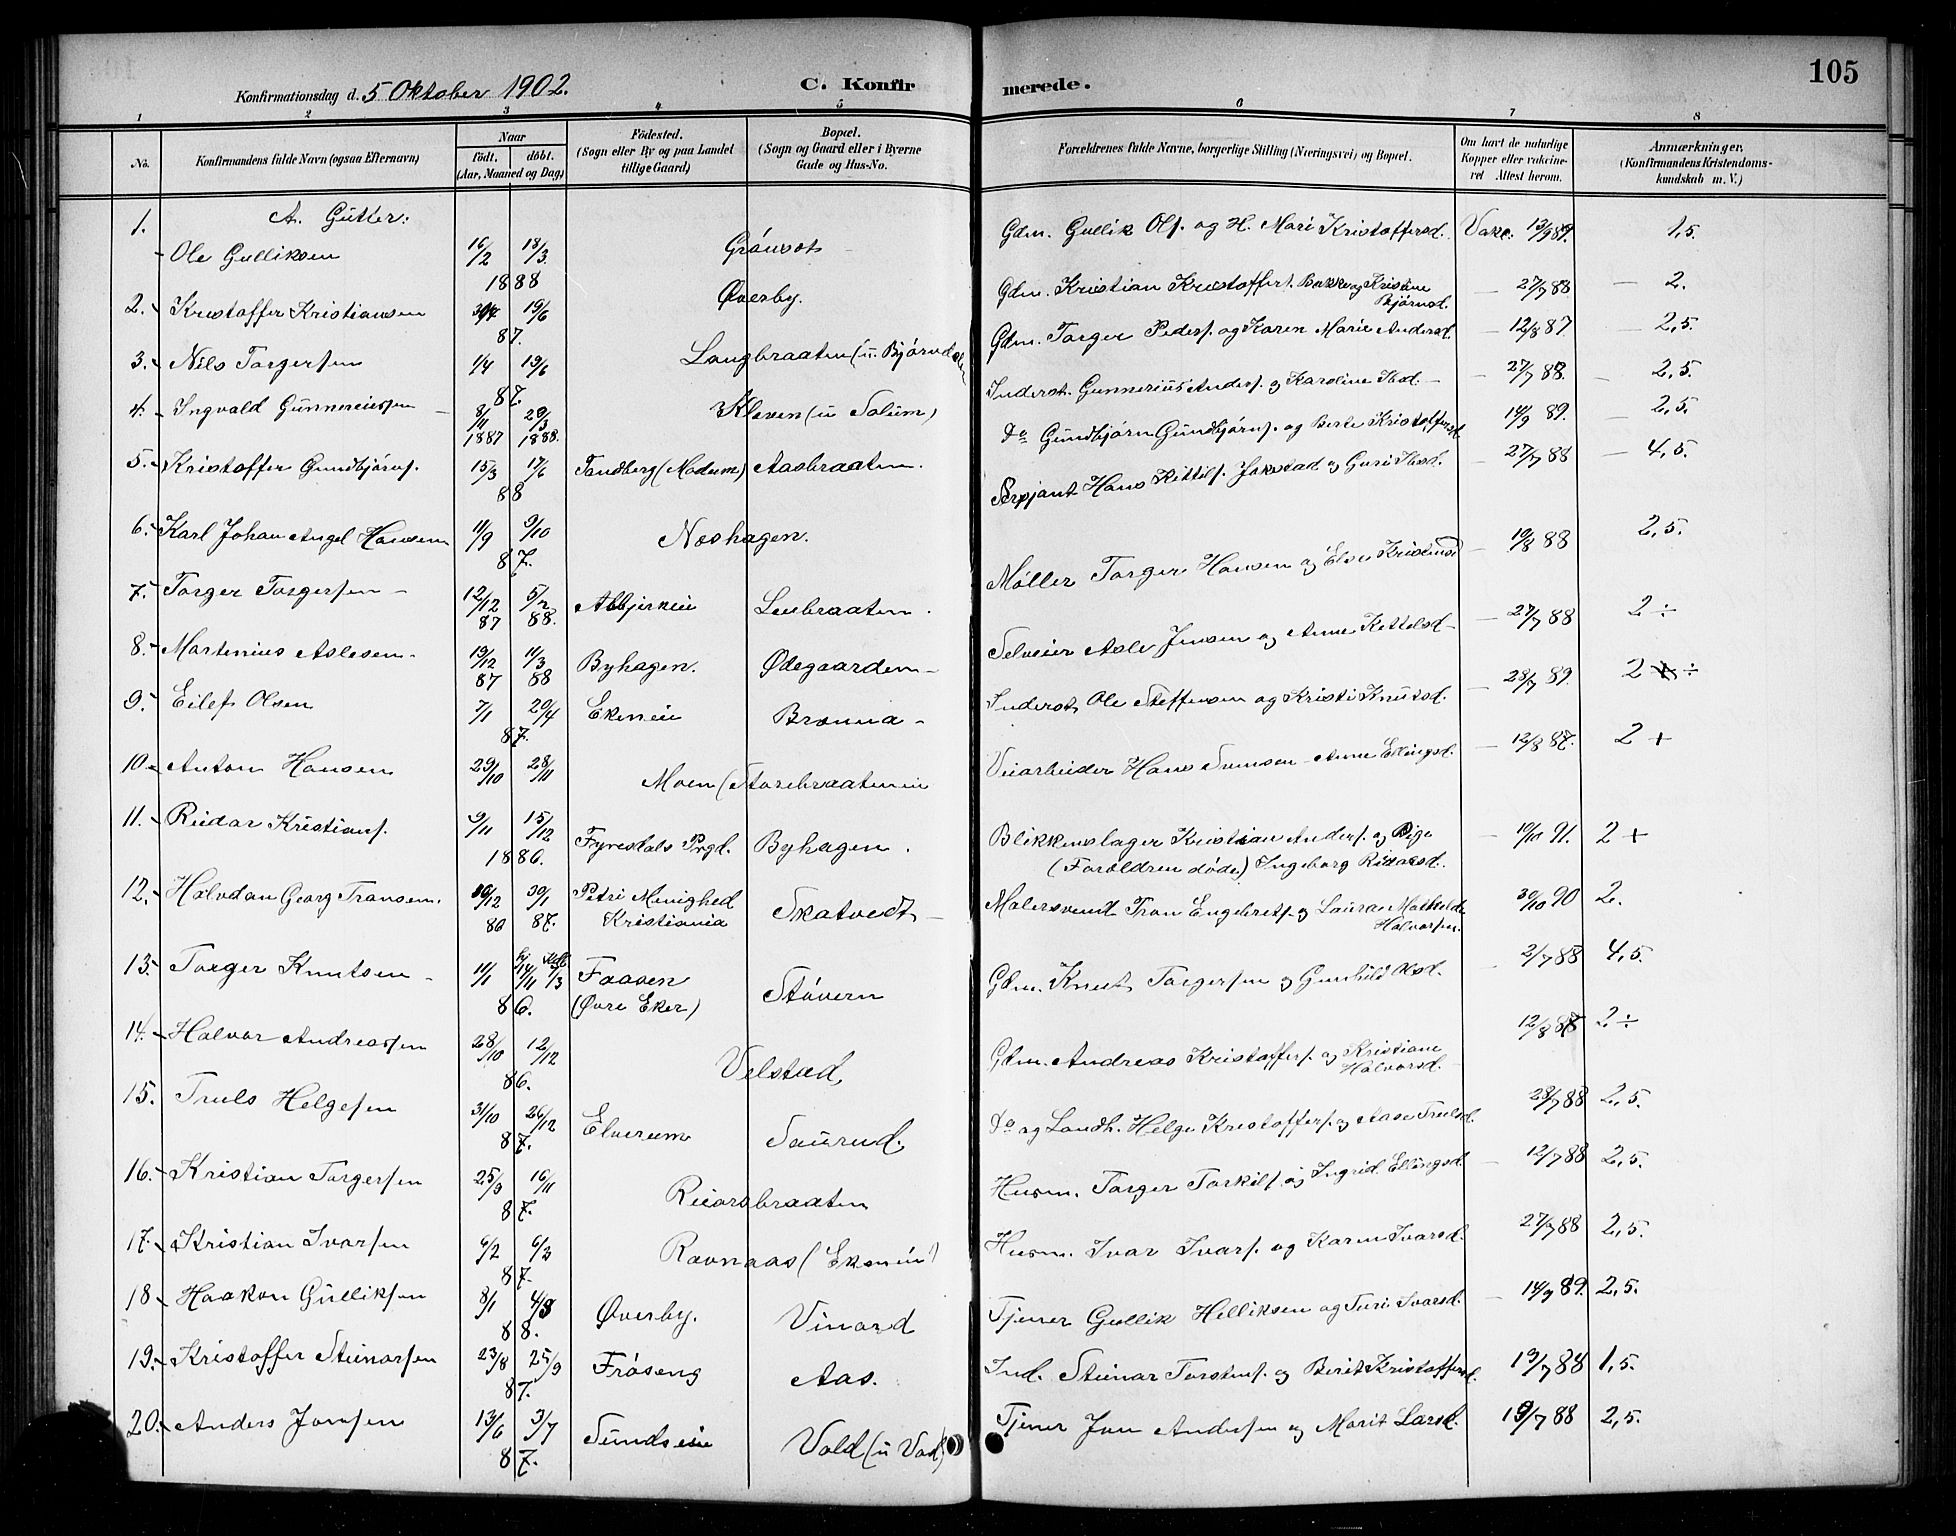 105
Konfirmationsdag d. 5 Oktober 1902. C. Konfirmerede.
1 2 3 4 5 6 7 8
No. Konfirmandens fulde Navn (ogsaa Efternavn) Naar født. døbt. (Aar, Maaned og Dag) Fødested. (Sogn eller By og paa Landet tillige Gaard) Bopæl. (Sogn og Gaard eller i Byerne Gade og Hus-No.) Forældrenes fulde Navne, borgerlige Stilling (Næringsvei) og Bopæl. Om havt de naturlige Kopper eller vaksineret Attest herom. Anmærkninger. (Konfirmandens Kristendomskundskab m. V.)
A. Gutter:
1. Ole Gulliksen 16/2 18/3 1888 Gdm. Gullik Ols. og H. Mari Kristoffersd. Vakc. 13/9 89. 1,5.
2. Kristoffer Kristiansen 19/6 87. Øverby. Gdm. Kristian Kristoffers. Bakke og Kristine Bjørnsd. 27/7 88 2.
3. Nils Torgersen 1/4 19/6 87. Langbraaten (u. Bjørndalen Gdm. Torger Peders. og Karen Marie Andersd. 12/8 87 2,5.
4. Ingvald Gunneriussen 8/11 1887 29/3 1888. Kleven (u Solum) Inderst. Gunnerius Anders. og Karoline 27/7 88. 2,5.
5. Kristoffer Gundbjørns. 15/3 17/6 88 Tandberg (Modum) Aasbraaten. do Gundbjørn Gundbjørns. og Berte Kristoffersd. 14/9 89. 2,5.
6. Karl Johan Angel Hansen 11/9 9/10 87. Næshagen. Sersjant Hans Kittils. Jokstad og Guri 27/7 88 4,5.
7. Torger Torgersen 12/12 87 5/2 88. Leubraaten. Møller Torger Hansen og Else 19/8 88 2,5.
8. Martenius Aslesen 19/12 87 11/3 88 Byhagen. Ødegaarden Selveier Asle Jensen og Anne Kittelsd 27/7 88 2 ÷
9. Eilef Olsen 7/1 20/4 87. Ekeneie Brænna Inderst. Ole Steffensen og Kristi Knutsd. 28/7 89. 2 ÷
10. Anton Hansen 29/10 28/11 Moen (Storebraateneie Veiarbeider Hans Svensen Anne Ellingsd. 12/8 87. 2 +
11. Reidar Kristians. 9/11 15/12 1886. Fyresdals Prgd. Byhagen. Blikkenslager Kristian Anders. og Pige (Forældren døde) Ingeborg 19/10 91. 2 +
12. Halvdan Georg Transen. 30/1 86 87. Petri Menighed Kristiania Skatvedt Malersvend Tron Engebrets. og Laura Mathilde Halvorsen. 30/10 90 2.
13. Torger Knutsen 11/1 86. Faasen (Øvre Eker) Støvern Gdm. Knut Torgersen og Gunhild Olsd. 2/7 88 4,5.
14. Halvor Andreassen 28/10 12/12 86. Velstad, Gdm. Andreas Kristoffers. og Kristiane Halvorsd. 12/8 2 ÷
15. Truls Helgesen 31/10 26/12 87. Elverum Saurud. do og Landh. Helge Kristoffers. og Aase Trulsd. 28/7 88 2,5.
16. Kristian Torgersen 25/9 16/11 87. Reiarsbraaten Husm. Torger Torkils. og Ingrid Ellingsd. 12/7 88 2,5.
17. Kristian Ivarsen 6/2 6/3 87. Ravnaas (Ekeneie) Husm. Ivar Ivars. og Karen Ivarsd. 27/7 88 2,5.
18 Haakon Gulliksen 8/1 4/3 88. Øverby. Vinord Tjener Gullik Helliksen og Turi Ivarsd. 14/9 89. 2,5.
19. Kristoffer Steinarsen 23/8 25/9 87. Frøseng Aas. Ind. Steinar Torstens. og Berit Kristoffersd. 19/7 88 1,5.
20. Anders Jonsen 13/6 3/7 87. Sundseie Vold (u Vad) Tjener Jon Andersen og Marit Larsd. 19/7 88 2,5.